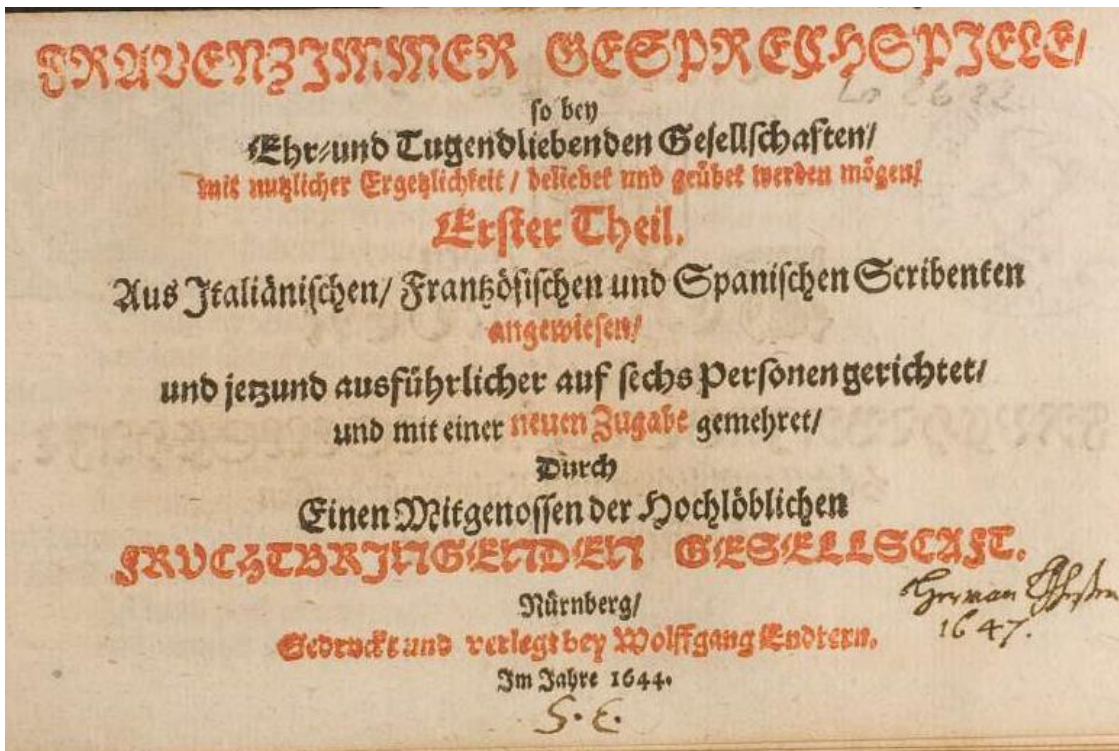 FRAVENZIMMER GESPRECHSPIELE/
so bey
Ehr-und Tugendliebenden Gesellschaften/
mit nutzlicher Ergetzlichkeit / beliebet und geübet werden mögen/
Erster Theil.
Aus Italiänischen/ Frantzösischen und Spanischen Scribenten
angewiesen/
und jetzund ausführlicher auf sechs Personen gerichtet/
und mit einer neuen Zugabe gemehret/
Durch
Einen Mitgenossen der Hochlöblichen
FRVCHTBRINGENDEN GESELLSCAFT.
Nürnberg/
Gedruckt und verlegt bey Wolffgang Endtern.
Im Jahre 1644.
Herman
1647.
S. E.